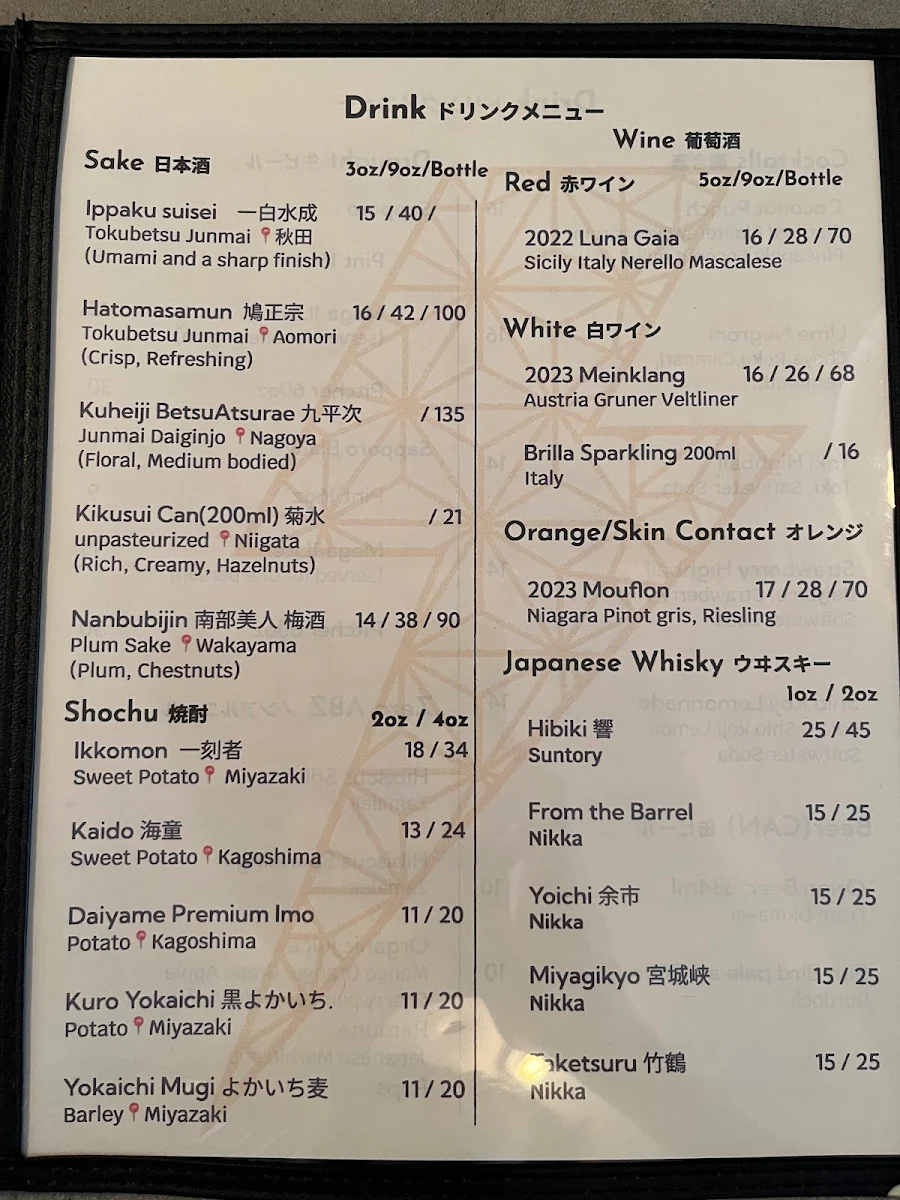 Drink ドリンクメニュー
Sake 日本酒 3oz/9oz/Bottle
Ippaku suisei 一白水成 15 / 40 /
Tokubetsu Junmai 📍秋田
(Umami and a sharp finish)
Hatomasamun 鳩正宗 16 / 42 / 100
Tokubetsu Junmai 📍Aomori
(Crisp, Refreshing)
Kuheiji BetsuAtsurae 九平次 / 135
Junmai Daiginjo 📍Nagoya
(Floral, Medium bodied)
Kikusui Can(200ml) 菊水 / 21
unpasteurized 📍Niigata
(Rich, Creamy, Hazelnuts)
Nanbubijin 南部美人 梅酒 14 / 38 / 90
Plum Sake 📍Wakayama
(Plum, Chestnuts)
Shochu 焼酎 2oz / 4oz
Ikkomon 一刻者 18 / 34
Sweet Potato📍 Miyazaki
Kaido 海童 13 / 24
Sweet Potato📍Kagoshima
Daiyame Premium Imo 11 / 20
Potato📍Kagoshima
Kuro Yokaichi 黒よかいち. 11 / 20
Potato📍Miyazaki
Yokaichi Mugi よかいち麦 11 / 20
Barley📍Miyazaki
Wine 葡萄酒
Red 赤ワイン 5oz/9oz/Bottle
2022 Luna Gaia 16 / 28 / 70
Sicily Italy Nerello Mascalese
White 白ワイン
2023 Meinklang 16 / 26 / 68
Austria Gruner Veltliner
Brilla Sparkling 200ml / 16
Italy
Orange/Skin Contact オレンジ
2023 Mouflon 17 / 28 / 70
Niagara Pinot gris, Riesling
Japanese Whisky ウヰスキー
1oz / 2oz
Hibiki 響 25 / 45
Suntory
From the Barrel 15 / 25
Nikka
Yoichi 余市 15 / 25
Nikka
Miyagikyo 宮城峡 15 / 25
Nikka
Taketsuru 竹鶴 15 / 25
Nikka